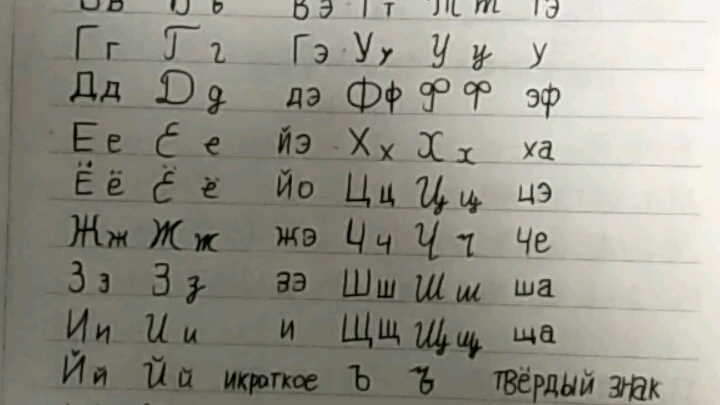 Вв Вв вэ Тт Тт тэ
Гг Гг гэ Уу Уу у
Дд Дд дэ Фф Фф эф
Ее Ее йэ Хх Хх ха
Ёё Ёё йо Цц Цц цэ
Жж Жж жэ Чч Чч че
Зз Зз зэ Шш Шш ша
Ии Ии и Щщ Щщ ща
Йй Йй икроткое Ъ ъ твёрдый знак